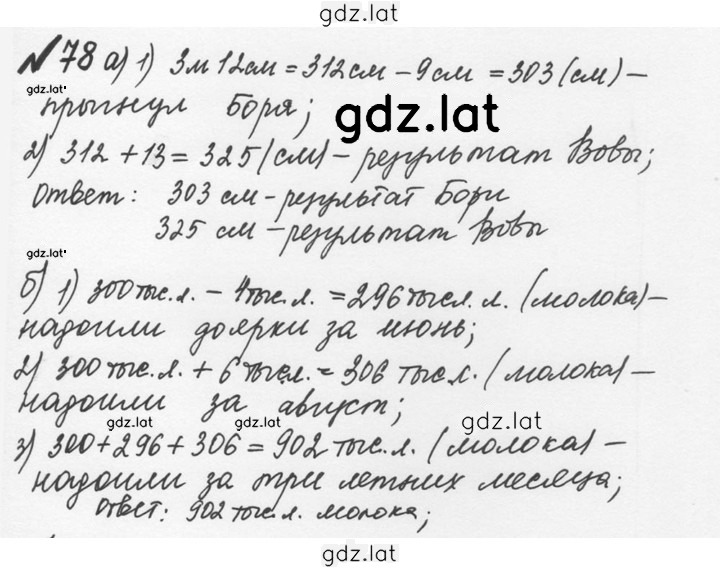 gdz.lat
№78 а) 1) 3м 12см = 312см – 9см = 303 (см) –
gdz.lat
прыгнул Боря;
gdz.lat
2) 312 + 13 = 325 (см) – результат Вовы;
Ответ: 303 см – результат Бори
325 см – результат Вовы
gdz.lat
б) 1) 300 тыс. л. – 4 тыс. л. = 296 тысл. л. (молока) –
надоили доярки за июнь;
2) 300 тыс. л. + 6 тыс. л. = 306 тыс. л. (молока) –
надоили за август;
gdz.lat gdz.lat gdz.lat
3) 300 + 296 + 306 = 902 тыс. л. (молока) –
надоили за три летних месяца;
Ответ: 902 тыс. л. молока;
gdz.lat